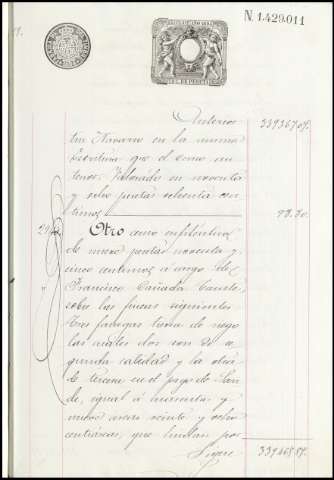 N. 1.429.011
Anterior 339367.07.
tin Navarro en la misma
escritura que el censo an-
terior. Valorado en noventa
y ocho pesetas ochenta cen-
timos 98.80.
Otro censo enfitéutico
de nueve pesetas noventa y
cinco centimos á cargo de
Francisco Cañada
sobre las fincas siguientes
tres fanegas tierra de riego
las cuales dos son de se
gunda calidad y la otra
de tercera en el pago de
de, igual á cincuenta y
nueve areas veinte y ocho
centiáreas, que lindan por
Sigue 339465.87.